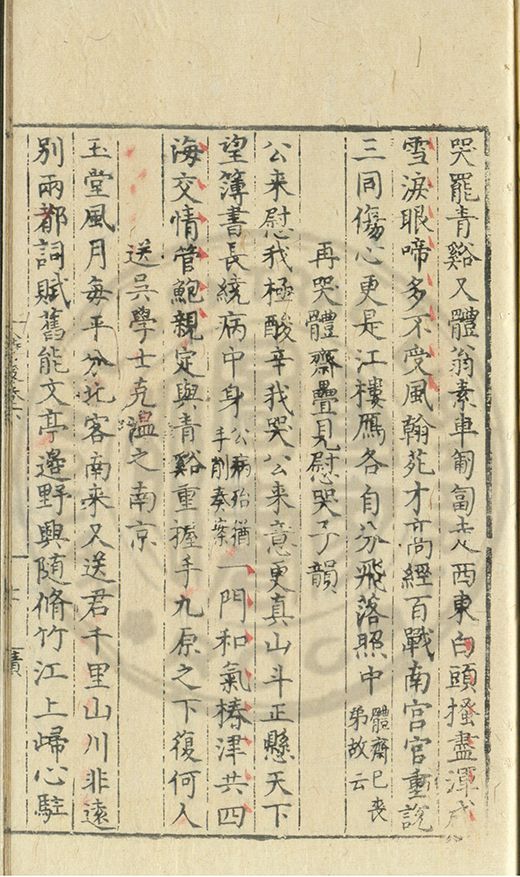 哭罷青谿又體翁素車匍匐走西東白頭搔盡渾成
雪淚眼啼多不受風翰苑才高經百戰南宮官重說
三同傷心更是江樓鴈各自分飛落照中體齋已喪弟故云
再哭體齋疊見慰哭子韻
公来慰我極酸辛我哭公来意更真山斗正懸天下
望簿書長繞病中身公病殆猶手削奏案一門和氣椿津共四
海交情管鮑親定與青谿重握手九原之下復何人
送吳學士克溫之南京
玉堂風月每平分北客南来又送君千里山川非遠
別兩都詞賦舊能文亭邊野興隨脩竹江上歸心駐